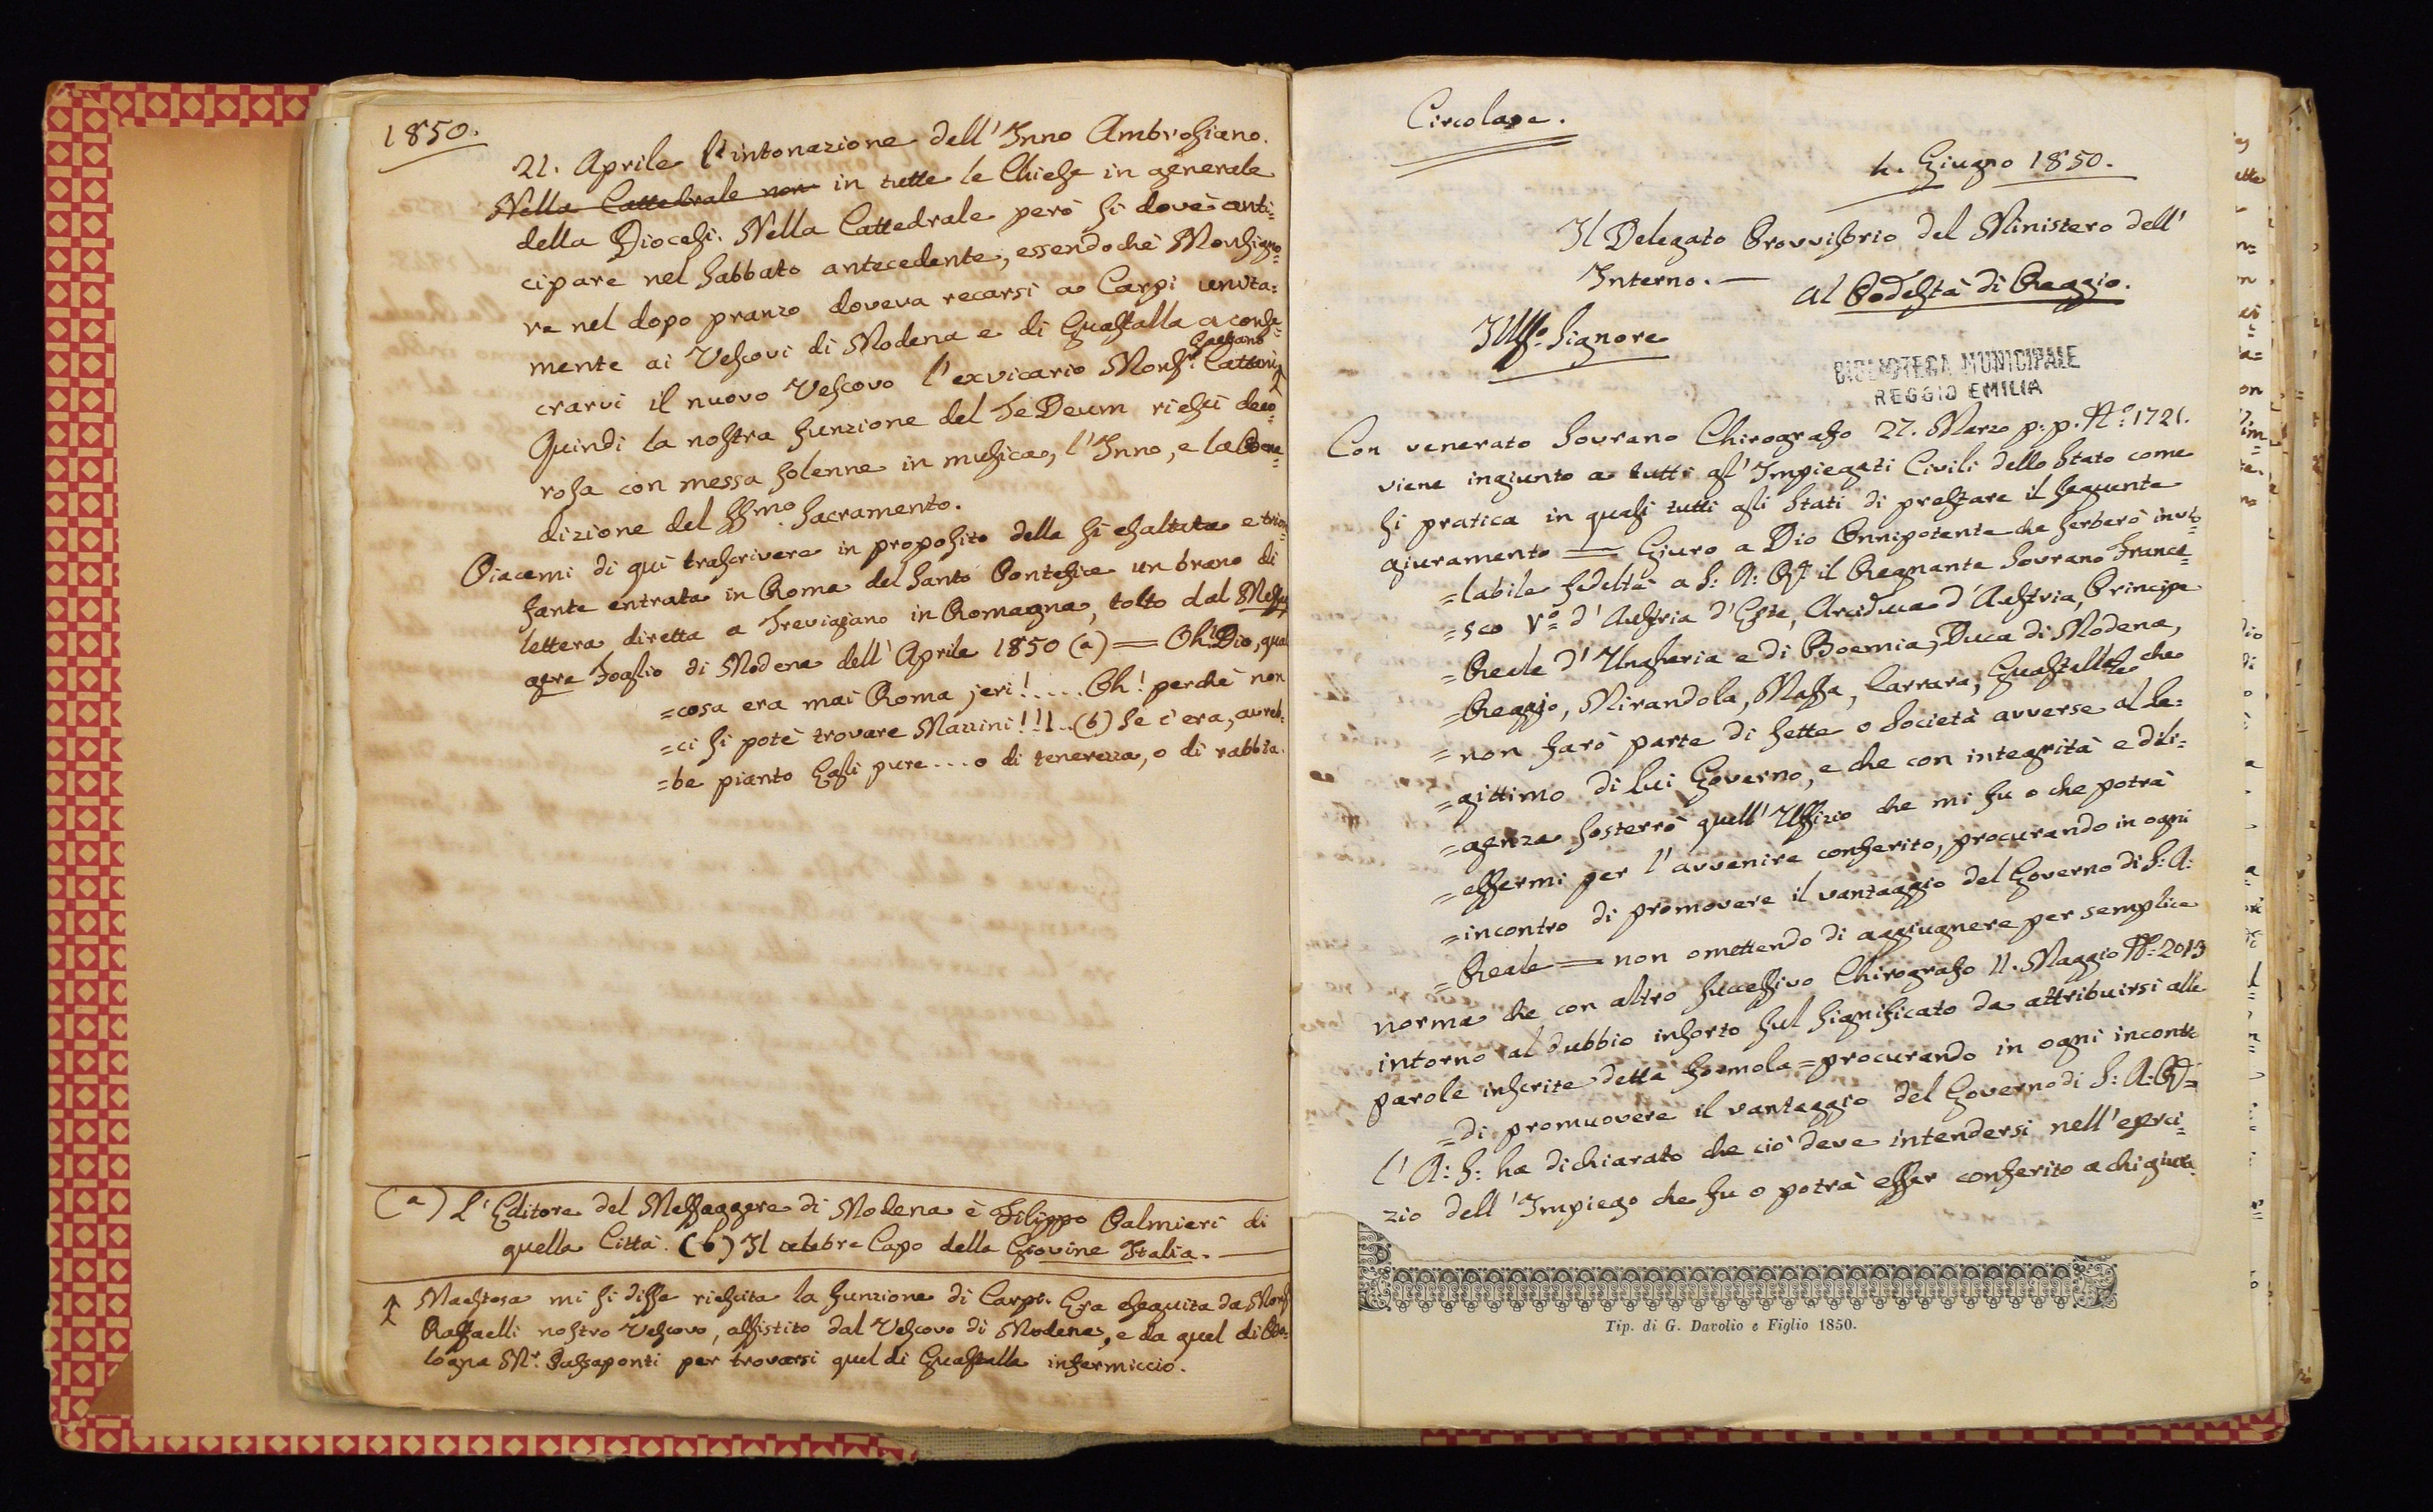 1850.
21. Aprile l'intonazione dell'Inno Ambrosiano.
Nella Cattedrale non in tutte le Chiese in generale
della Diocesi. Nella Cattedrale però si dovè anti=
cipare nel Sabbato antecedente, essendochè Monsigno=
re nel dopo pranzo doveva recarsi a Carpi unita=
mente ai Vescovi di Modena e di Guastalla a conse=
crarvi il nuovo Vescovo l'exvicario Monsr. Gaetano Cattani
Quindi la nostra funzione del Te Deum riescì deco=
rosa con messa solenne in musica, l'Inno, e la Bene=
dizione del SSmo. Sacramento.
Piacemi di quì trascrivere in proposito della sì esaltata e trion=
fante entrata in Roma del Santo Pontefice un brano di
lettera diretta a Trevigiano in Romagna, tolto dal Messag
gere Foglio di Modena dell'Aprile 1850 (a) = Oh! Dio, qual
=cosa era mai Roma jeri!.....Oh! perchè non
=ci si potè trovare Mazzini!!!..(b) Se c'era, avreb=
=be pianto Egli pure....o di tenerezza, o di rabbia.
(a) L'Editore del Messaggere di Modena è Filippo Palmieri di
quella Città. (b) Il celebre Capo della Giovine Italia.
Maestosa mi si disse riescita la funzione di Carpi. Era eseguita da Mons
Raffaelli nostro Vescovo, assistito dal Vescovo di Modena, e da quel di Bo=
logna Mr. Balsaponti per trovarsi quel di Guastalla infermiccio.
Circolare.
4. Giugno 1850.
Il Delegato Provvisorio del Ministero dell'
Interno. —
Al Podestà di Reggio.
Illmo. Signore
BIBLIOTECA MUNICIPALE
REGGIO EMILIA
Con venerato Sovrano Chirografo 27. Marzo p: p. No. 1721.
viene ingiunto a tutti gl'Impiegati Civili dello Stato come
si pratica in quasi tutti gli Stati di prestare il seguente
giuramento = Giuro a Dio Onnipotente che serberò invio=
=labile fedeltà a S: A: R. il Regnante Sovrano France=
=sco Vo. d'Austria d'Este, Arciduca d'Austria, Principe
=Reale d'Ungheria e di Boemia, Duca di Modena,
=Reggio, Mirandola, Massa, Carrara, Guastalla che
=non farò parte di sette o Società avverse al le=
=gittimo di lui Governo, e che con integrità e dili=
=genza sosterrò quell'Uffizio che mi fu o che potrà
=essermi per l'avvenire conferito, procurando in ogni
=incontro di promovere il vantaggio del Governo di S: A:
=Reale = non omettendo di aggiugnere per semplice
norma che con altro successivo Chirografo 11. Maggio N. 2013
intorno al dubbio insorto sul significato da attribuirsi alle
parole inserite detta formola = procurando in ogni incont
=di promuovere il vantaggio del Governo di S: A: R =
l'A: S: ha dichiarato che ciò deve intendersi nell'eserci=
zio dell'Impiego che fu o potrà esser conferito a chi giura.
Tip. di G. Davolio e Figlio 1850.